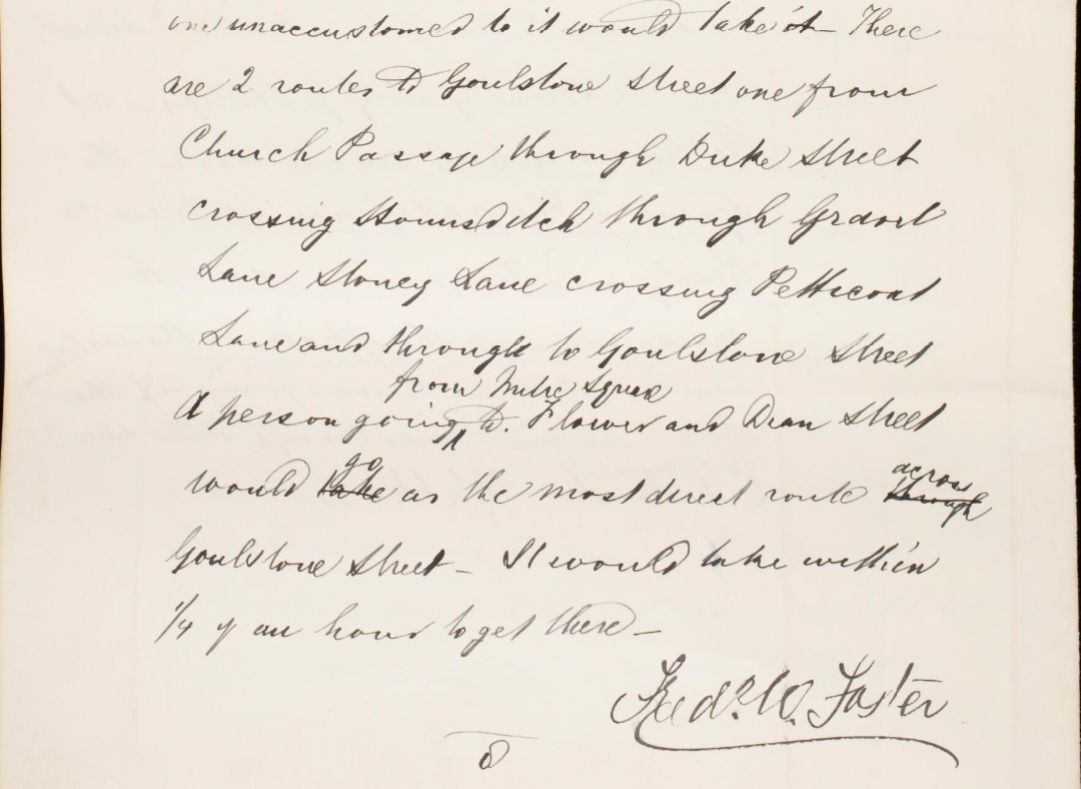 one unaccustomed to it would take it – There
are 2 routes to Goulstone Street one from
Church Passage through Duke Street
crossing Hounsditch through Gravel
Lane Stoney Lane crossing Petticoat
Lane and through to Goulstone Street
from Mitre Square
A person going ^ to. Flower and Dean Street
go across
would take as the most direct route through
Goulstone Street – It would take within
1/4 of an hour to get there –
Fredk. W. Foster
8